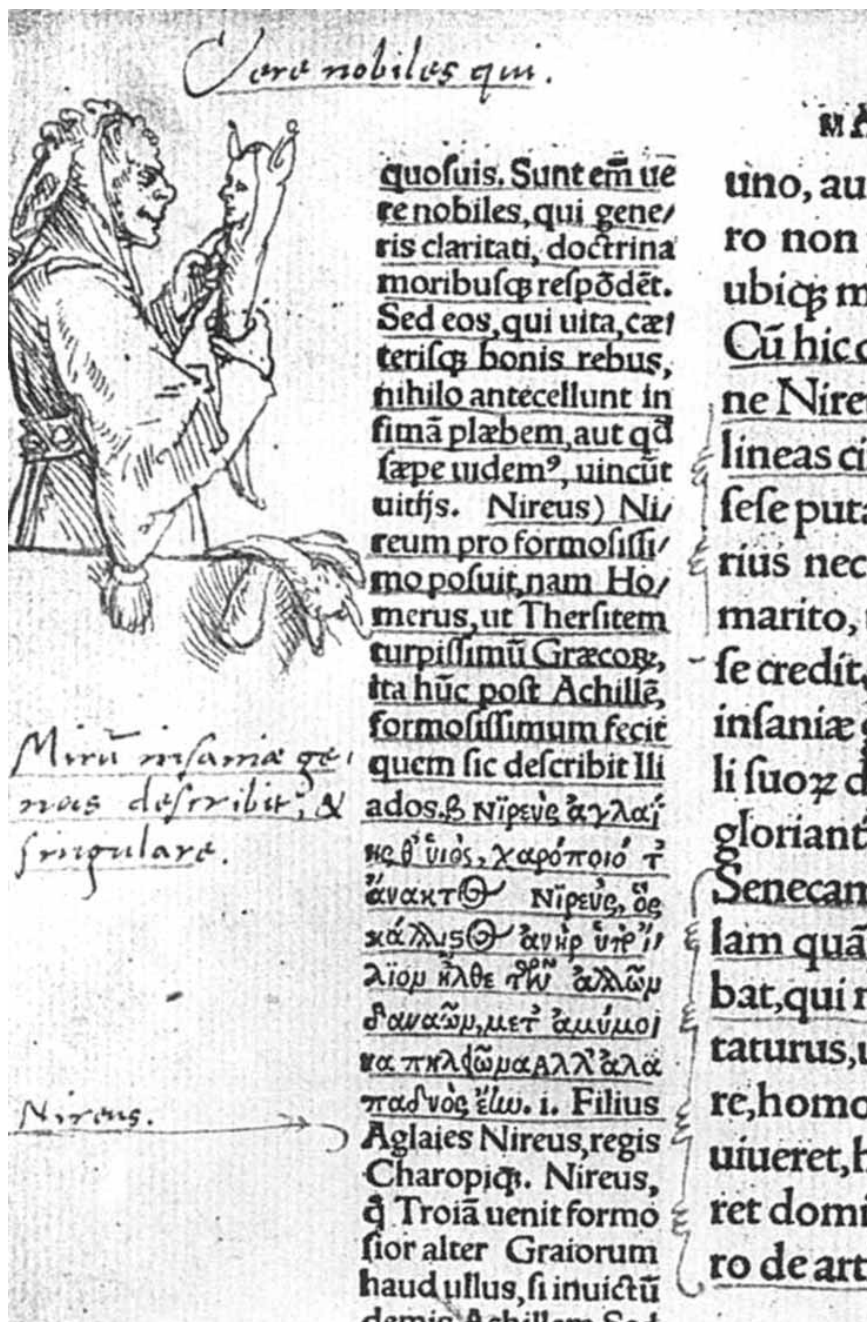 Vere nobiles qui.
quoſuis. Sunt em̃ ue
re nobiles, qui gene/
ris claritati, doctrina
moribuſq; reſpõdẽt.
Sed eos, qui uita, cæ/
teriſq; bonis rebus,
nihilo antecellunt in
fimã plæbem, aut qd
ſæpe uidem⁹, uincũt
uitijs. Nireus) Ni/
reum pro formoſiſſi/
mo poſuit, nam Ho/
merus, ut Therſitem
turpiſſimũ Græcoꝝ,
ita hũc poſt Achillẽ,
formoſiſſimum fecit
quem ſic deſcribit Ili
ados. β Νῖρευς ἀγλαΐ
ης θ' ὑιὸς, χαρόποιό τ'
ἄνακτος Νῖρευς, ὃς
κάλλιςος ἀνὴρ ὑπ' ἴ
λιον ἦλθε τῶν ἄλλων
δαναῶν, μετ' ἀμύμο
να πηλείωνα ἀλλ' ἀλα
παδνὸς ἔην. i. Filius
Aglaies Nireus, regis
Charopiq;. Nireus,
q̃ Troiã uenit formo
ſior alter Graiorum
haud ullus, ſi inuictũ
demis Achillem Sed
Mirũ insaniæ ge
nus describit, &
singulare.
Nireus.
MA
uno, au
ro non
ubiq; m
Cũ hic
ne Nire
lineas ci
ſeſe puta
rius nec
marito,
ſe credit,
inſaniæ
li ſuoꝝ d
gloriant
Senecam
lam quã
bat, qui
taturus, u
re, homo
uiueret, h
ret domi
ro de art